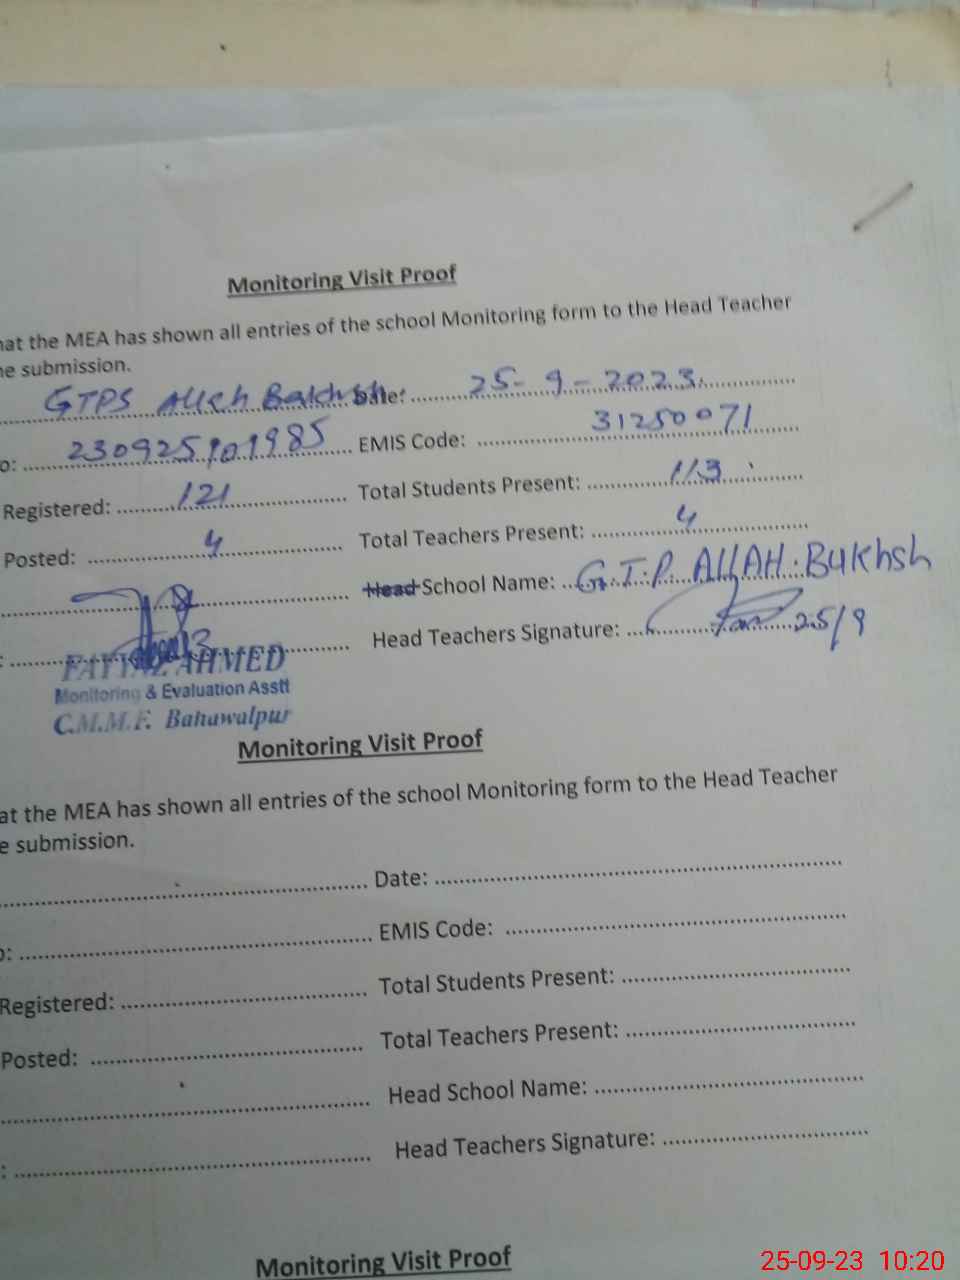 Monitoring Visit Proof
hat the MEA has shown all entries of the school Monitoring form to the Head Teacher
he submission.
GTPS Allah Bakhsh Date: 25-9-2023
o: 230925101985 EMIS Code: 31250071
Registered: 121 Total Students Present: 113
Posted: 4 Total Teachers Present: 4
Head School Name: G.T.P. ALLAH. Bukhsh
: Head Teachers Signature: 25/9
FAYYAZ AHMED
Monitoring & Evaluation Asstt
C.M.M.F. Bahawalpur
Monitoring Visit Proof
at the MEA has shown all entries of the school Monitoring form to the Head Teacher
e submission.
Date:
o: EMIS Code:
Registered: Total Students Present:
Posted: Total Teachers Present:
Head School Name:
: Head Teachers Signature:
Monitoring Visit Proof
25-09-23 10:20